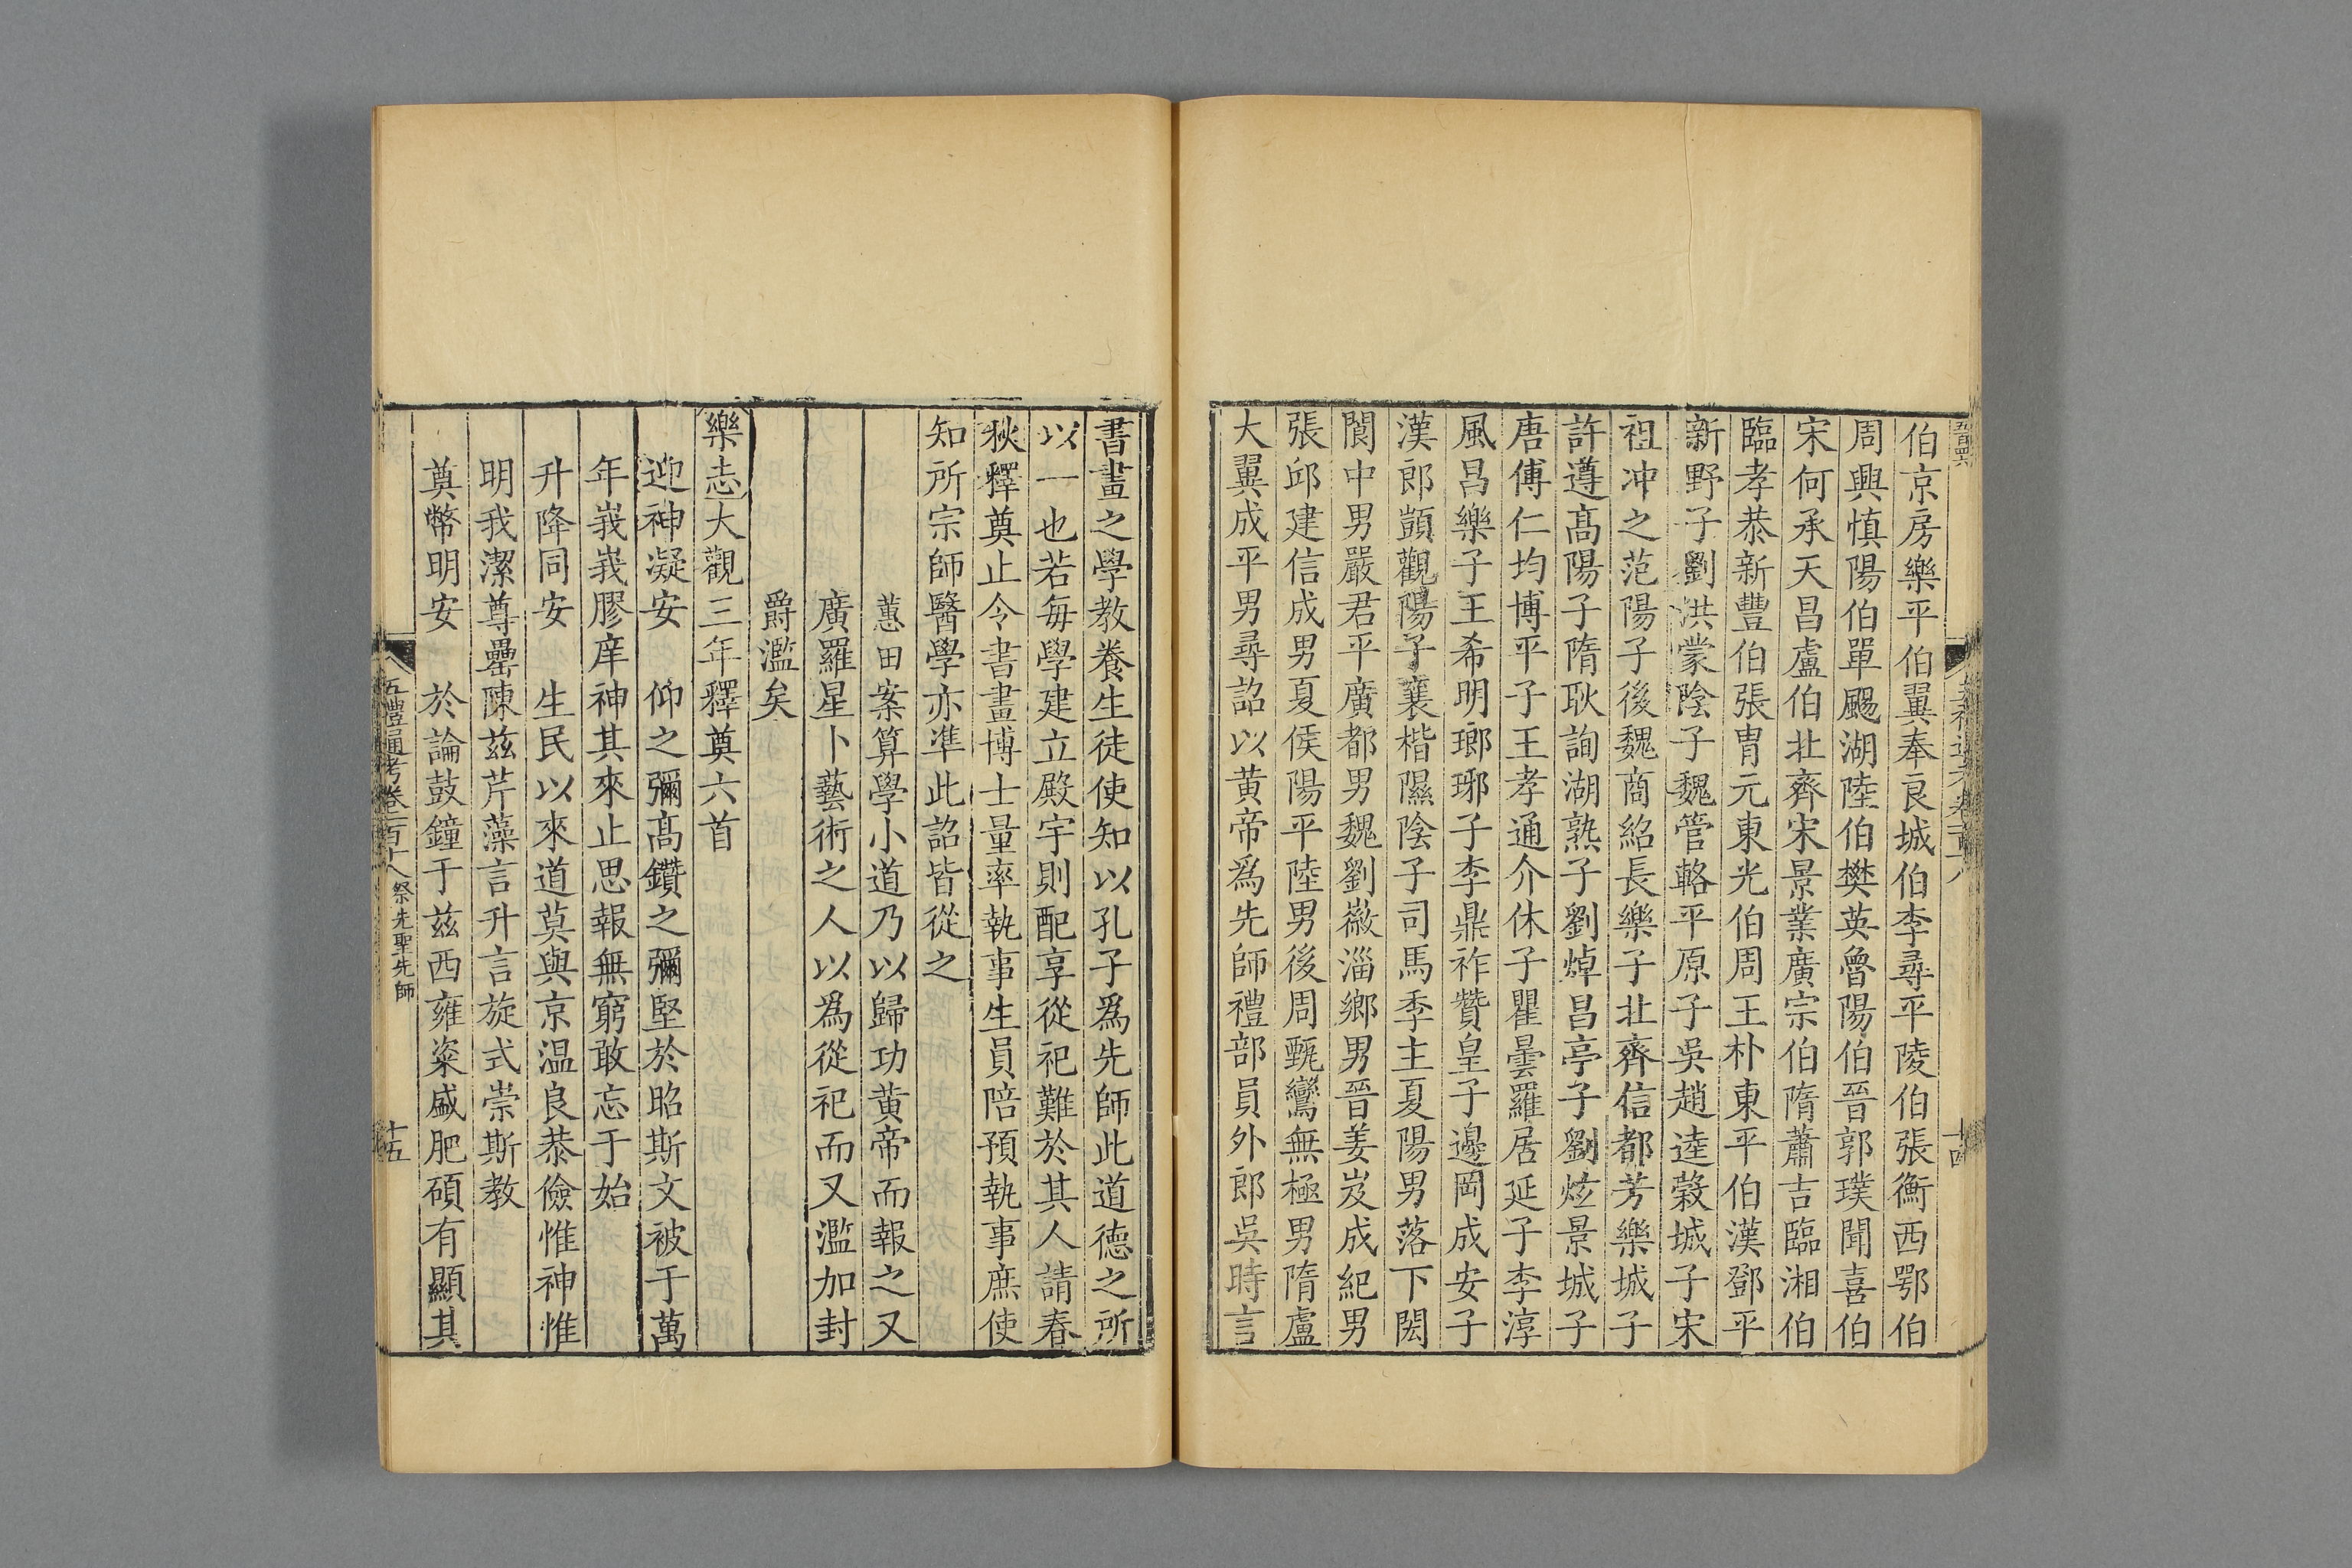 伯京房樂平伯翼奉良城伯李尋平陵伯張衡西鄂伯
周興慎陽伯單颺湖陸伯樊英魯陽伯晉郭璞聞喜伯
宋何承天昌盧伯北齊宋景業廣宗伯隋蕭吉臨湘伯
臨孝恭新豐伯張胄元東光伯周王朴東平伯漢鄧平
新野子劉洪蒙陰子魏管輅平原子吳趙逵穀城子宋
祖冲之范陽子後魏商紹長樂子北齊信都芳樂城子
許遵高陽子隋耿詢湖熟子劉焯昌亭子劉炫景城子
唐傅仁均博平子王孝通介休子瞿曇羅居延子李淳
風昌樂子王希明瑯琊子李鼎祚贊皇子邊岡成安子
漢郎顗觀陽子襄楷隰陰子司馬季主夏陽男落下閎
閬中男嚴君平廣都男魏劉徽淄鄉男晉姜岌成紀男
張邱建信成男夏侯陽平陸男後周甄鸞無極男隋盧
大翼成平男尋詔以黃帝爲先師禮部員外郎吳時言
書畫之學教養生徒使知以孔子爲先師此道德之所
以一也若每學建立殿宇則配享從祀難於其人請春
秋釋奠止令書畫博士量率執事生員陪預執事庶使
知所宗師醫學亦準此詔皆從之
蕙田案算學小道乃以歸功黃帝而報之又
廣羅星卜藝術之人以爲從祀而又濫加封
爵濫矣
樂志大觀三年釋奠六首
迎神凝安　仰之彌高鑽之彌堅於昭斯文被于萬
年峩峩膠庠神其來止思報無窮敢忘于始
升降同安　生民以來道莫與京温良恭儉惟神惟
明我潔尊罍陳兹芹藻言升言旋式崇斯教
奠幣明安　於論鼓鐘于兹西雍粢盛肥碩有顯其
五禮通考卷一百十八　祭先聖先師　十五